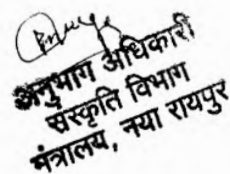 अनुभाग अधिकारी
संस्कृति विभाग
मंत्रालय, नया रायपुर